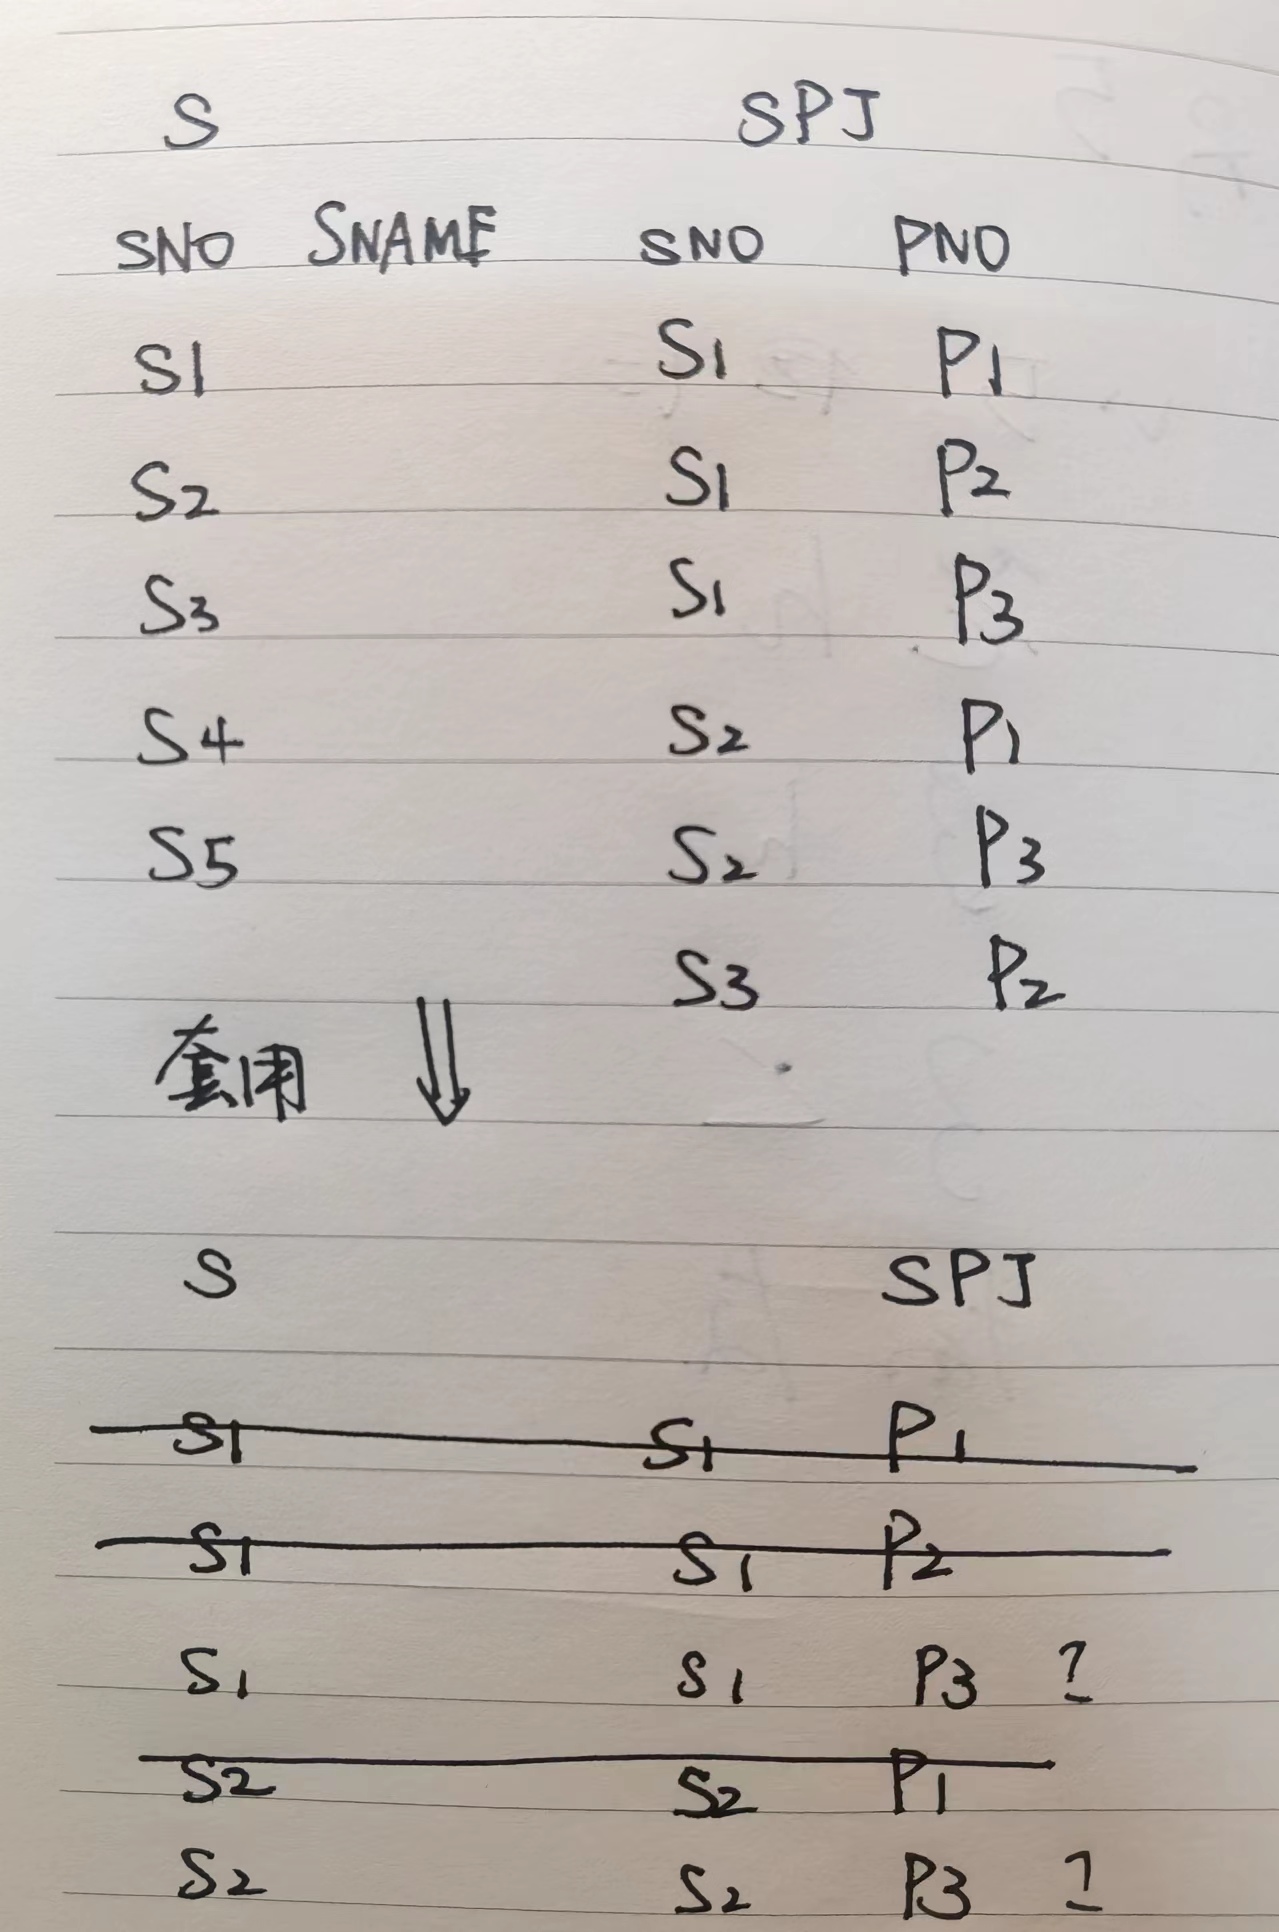 S SPJ
SNO SNAME SNO PNO
S1 S1 P1
S2 S1 P2
S3 S1 P3
S4 S2 P1
S5 S2 P3
S3 P2
套用
S SPJ
S1 S1 P1
S1 S1 P2
S1 S1 P3 ?
S2 S2 P1
S2 S2 P3 ?